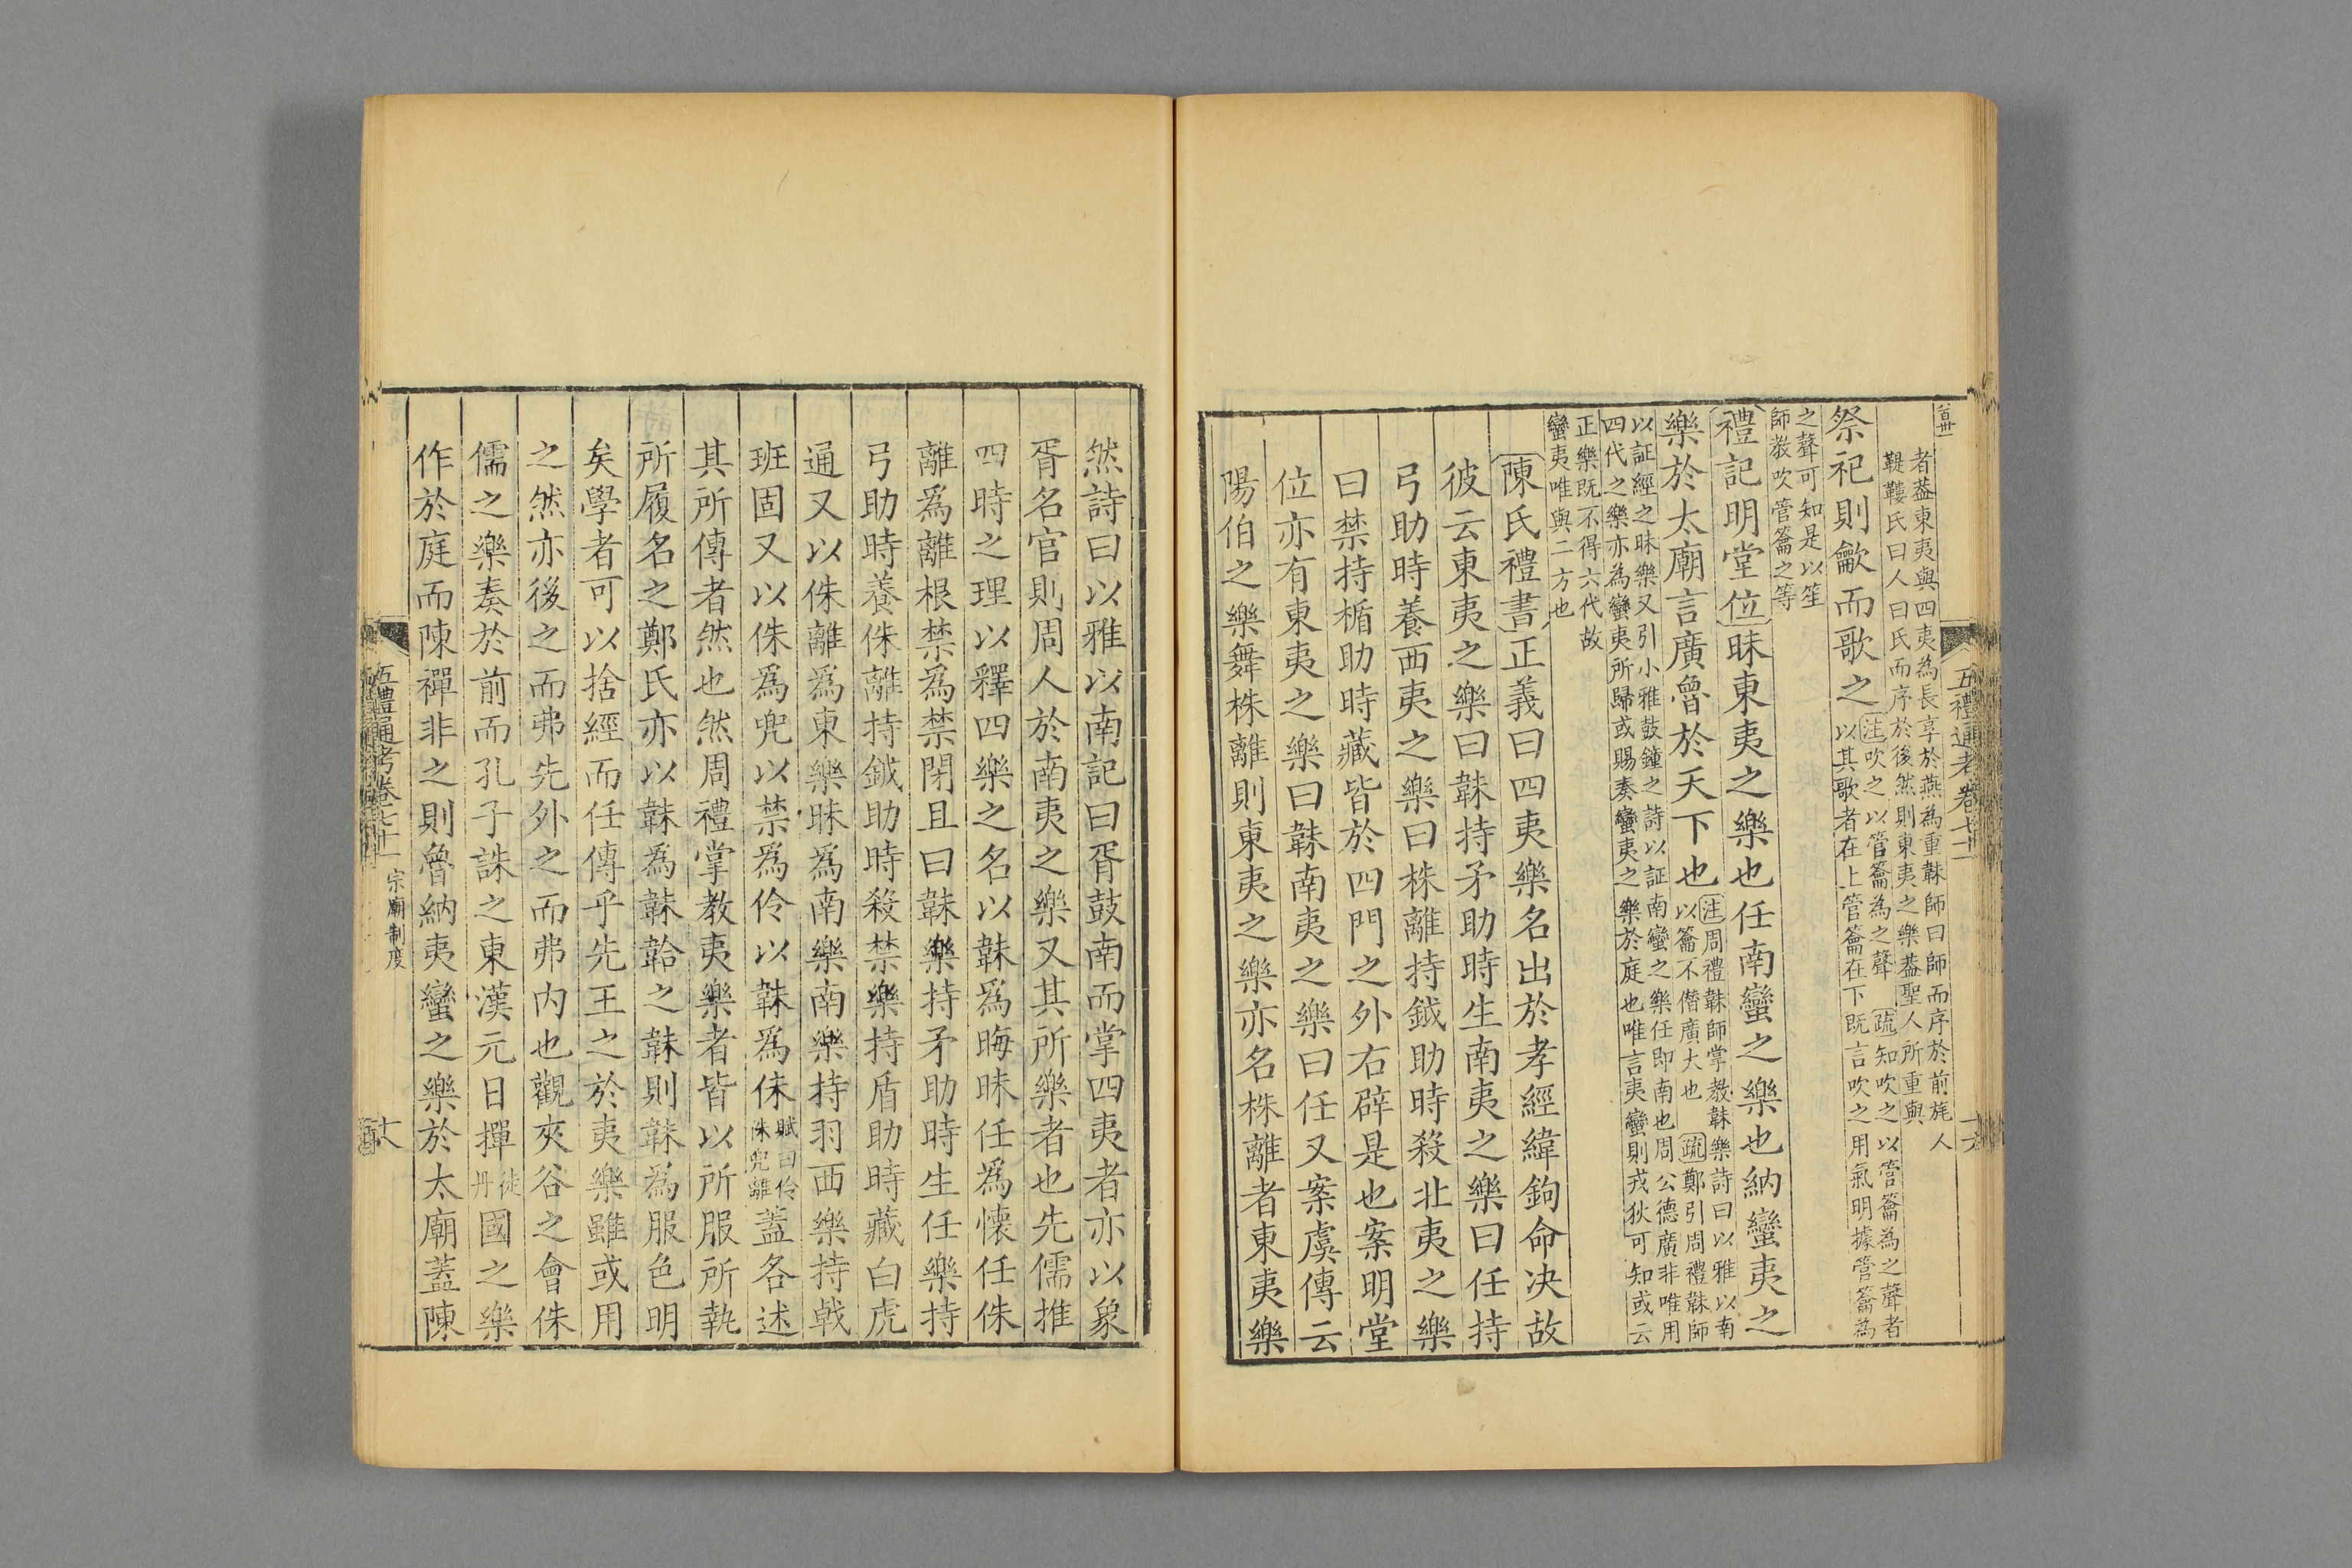 五禮通考卷七十二
十六
者葢東夷與四夷為長享於燕為重韎師曰師而序於前旄人
鞮鞻氏曰人曰氏而序於後然則東夷之樂葢聖人所重與
祭祀則龡而歌之
注吹之以管籥為之聲 疏知吹之以管籥為之聲者
以其歌者在上管籥在下既言吹之用氣明據管籥為
之聲可知是以笙
師教吹管籥之等
禮記明堂位昧東夷之樂也任南蠻之樂也納蠻夷之
樂於太廟言廣魯於天下也
注周禮韎師掌教韎樂詩曰以雅以南
以籥不僭廣大也 疏鄭引周禮韎師
以証經之昧樂又引小雅鼓鐘之詩以証南蠻之樂任即南也周公德廣非唯用
四代之樂亦為蠻夷所歸或賜奏蠻夷之樂於庭也唯言夷蠻則戎狄可知或云
正樂既不得六代故
蠻夷唯與二方也
陳氏禮書正義曰四夷樂名出於孝經緯鉤命决故
彼云東夷之樂曰韎持矛助時生南夷之樂曰任持
弓助時養西夷之樂曰株離持鉞助時殺北夷之樂
曰禁持楯助時藏皆於四門之外右辟是也案明堂
位亦有東夷之樂曰韎南夷之樂曰任又案虞傳云
陽伯之樂舞株離則東夷之樂亦名株離者東夷樂
然詩曰以雅以南記曰胥鼓南而掌四夷者亦以象
胥名官則周人於南夷之樂又其所樂者也先儒推
四時之理以釋四樂之名以韎為晦昧任為懷任侏
離為離根禁為禁閉且曰韎樂持矛助時生任樂持
弓助時養侏離持鉞助時殺禁樂持盾助時藏白虎
通又以侏離為東樂昧為南樂南樂持羽西樂持戟
班固又以侏為兜以禁為伶以韎為㑣賦曰伶侏兜離蓋各述
其所傳者然也然周禮掌教夷樂者皆以所服所執
所履名之鄭氏亦以韎為韎韐之韎則韎為服色明
矣學者可以捨經而任傳乎先王之於夷樂雖或用
之然亦後之而弗先外之而弗内也觀夾谷之會侏
儒之樂奏於前而孔子誅之東漢元日撣徒丹國之樂
作於庭而陳禪非之則魯納夷蠻之樂於太廟蓋陳
五禮通考卷七十二 宗廟制度